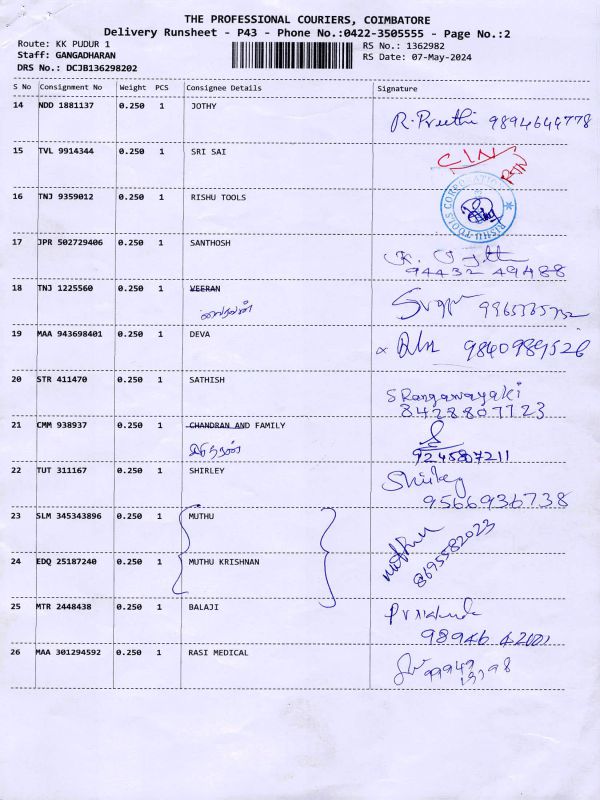 THE PROFESSIONAL COURIERS, COIMBATORE
Delivery Runsheet - P43 - Phone No.:0422-3505555 - Page No.:2
Route: KK PUDUR 1
RS No.: 1362982
Staff: GANGADHARAN
RS Date: 07-May-2024
DRS No.: DCJB136298202
S No Consignment No Weight PCS Consignee Details Signature
14 NDD 1881137 0.250 1 JOTHY R. Preethi 9894644778
15 TVL 9914344 0.250 1 SRI SAI
16 TNJ 9359012 0.250 1 RISHU TOOLS RISHU TOOLS CORPORATION
17 JPR 502729406 0.250 1 SANTHOSH
94432 49488
18 TNJ 1225560 0.250 1 VEERAN
19 MAA 943698401 0.250 1 DEVA 9840989526
20 STR 411470 0.250 1 SATHISH S Ranganayaki
8428807723
21 CMM 938937 0.250 1 CHANDRAN AND FAMILY
9245807211
22 TUT 311167 0.250 1 SHIRLEY Shirley
9566936738
23 SLM 345343896 0.250 1 MUTHU
24 EDQ 25187240 0.250 1 MUTHU KRISHNAN 8695582023
25 MTR 2448438 0.250 1 BALAJI
26 MAA 301294592 0.250 1 RASI MEDICAL